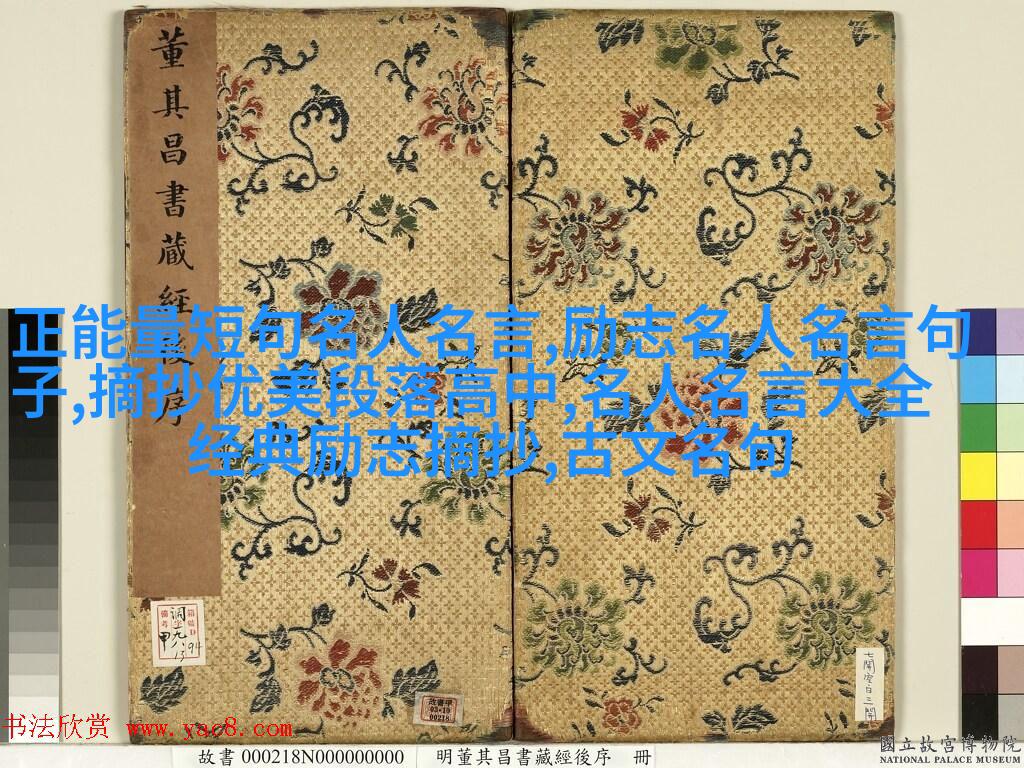 董其昌書藏經後序
正能量短句名人名言,励志名人名言句
子,摘抄优美段落高中,名人名言大全
经典励志摘抄,古文名句
備考
甲
94
13
00218
书法欣赏 www.yac8.com
故書 000218N000000000
明董其昌書藏經後序 冊
國立故宮博物院
NATIONAL PALACE MUSEUM